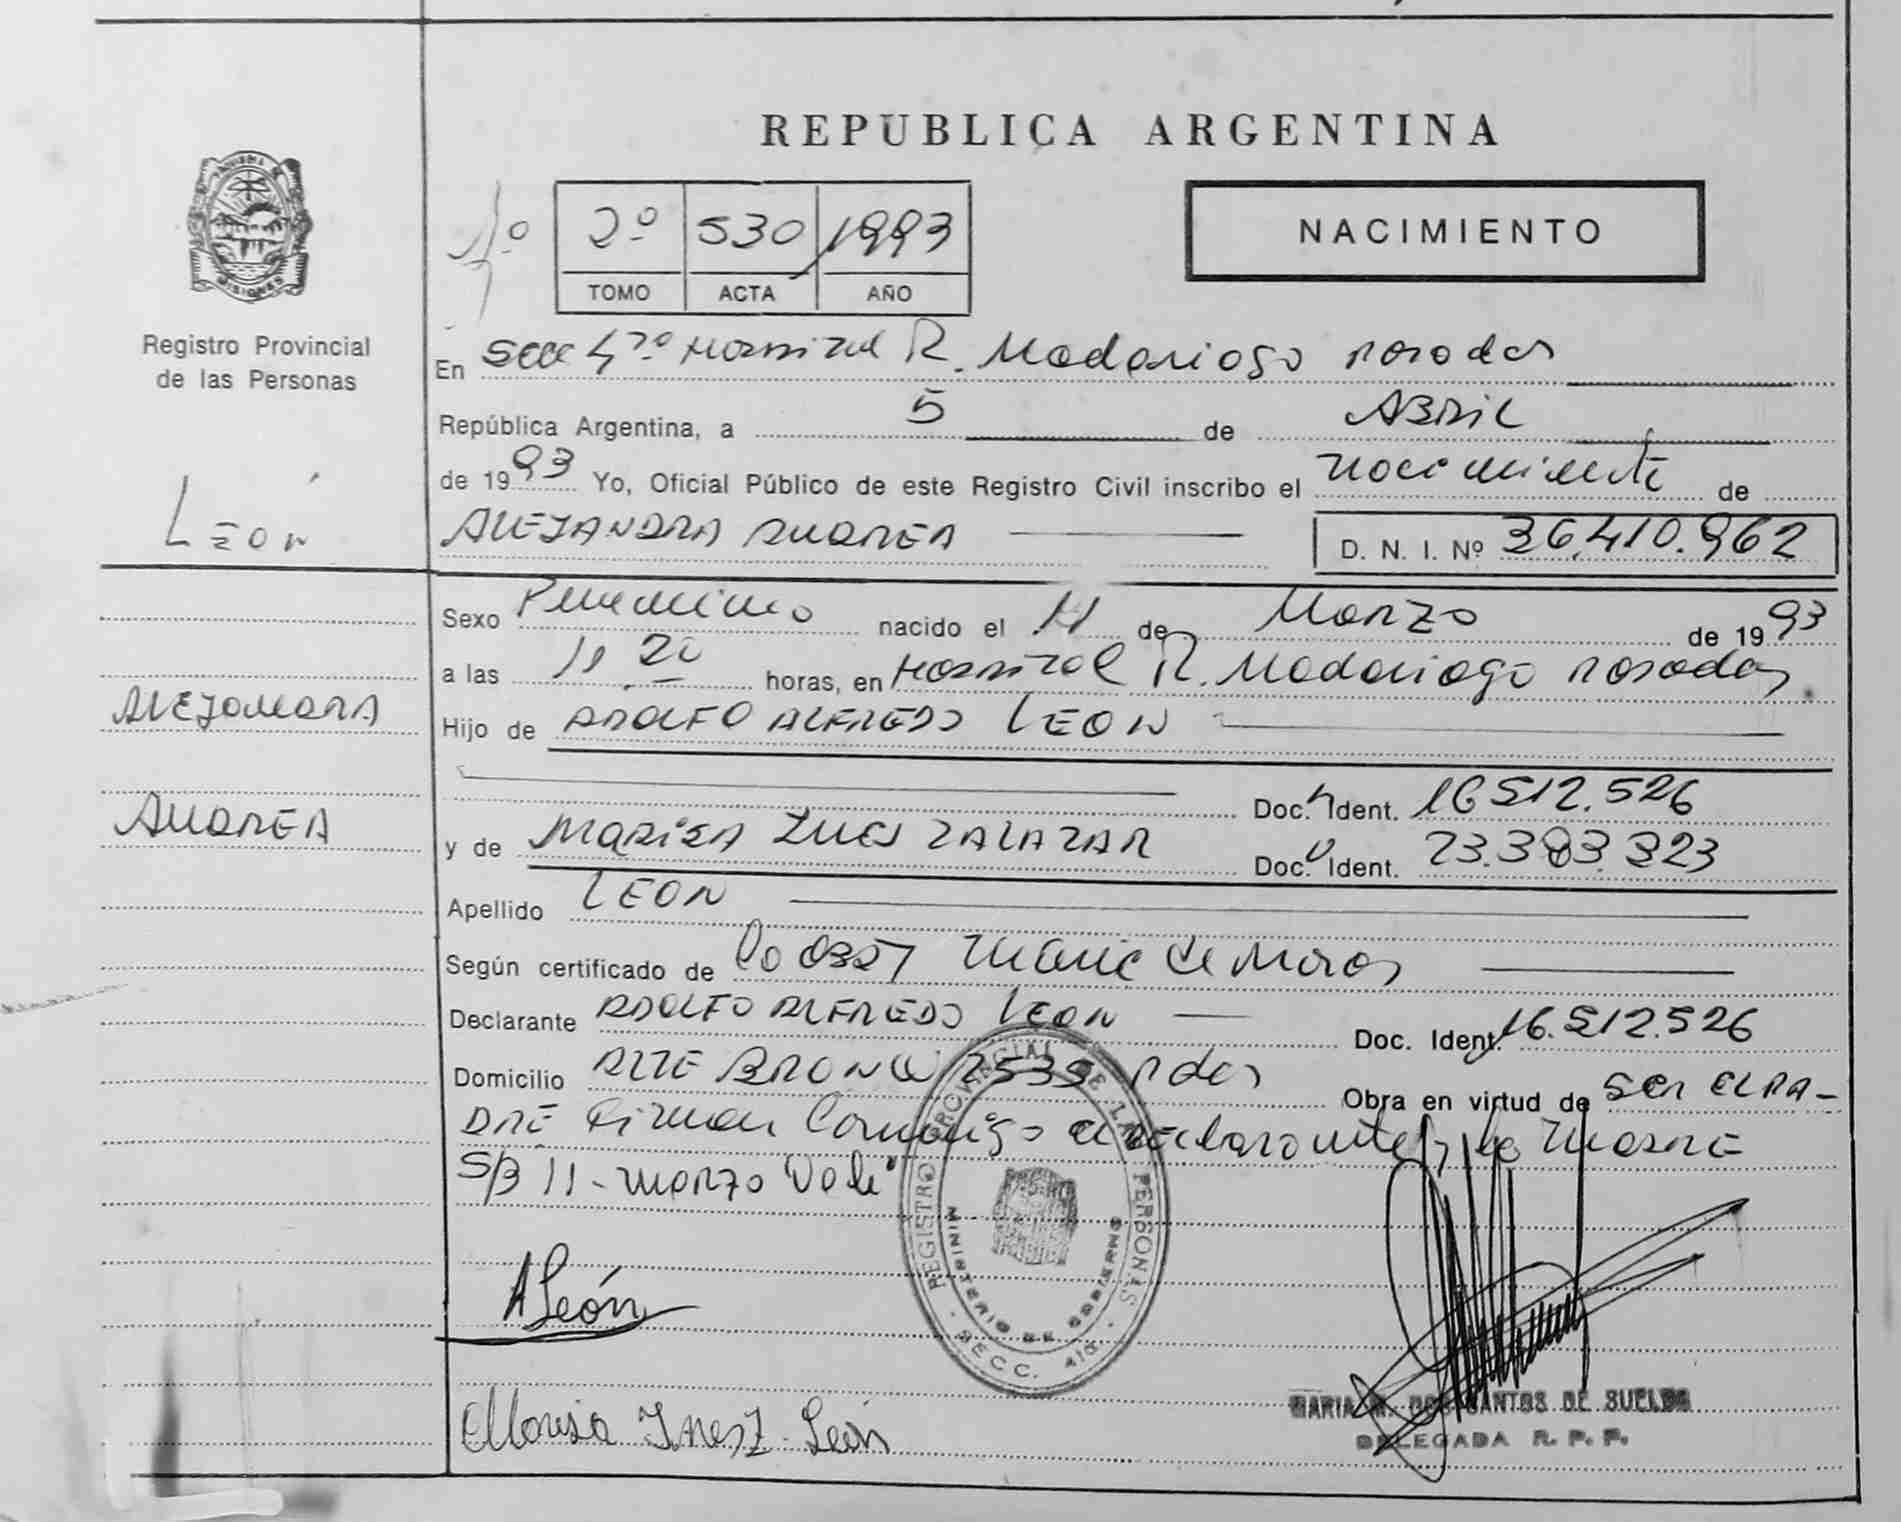 REPUBLICA ARGENTINA
MISIONES
Registro Provincial
de las Personas
2º 530 1993
TOMO ACTA AÑO
NACIMIENTO
En Secc 4ta Hospital R. Madariaga Posadas
República Argentina, a 5 de ABRIL
de 1993 Yo, Oficial Público de este Registro Civil inscribo el nacimiento de
LEÓN
ALEJANDRA ANDREA
D. N. I. Nº 36.410.962
Sexo Femenino nacido el 11 de Marzo de 1993
a las 11,20 horas, en Hospital R. Madariaga Posadas
ALEJANDRA
Hijo de ADOLFO ALFREDO LEON
Doc. Ident. 16.512.526
ANDREA
y de MARISA INES ZALAZAR Doc. Ident. 23.383.323
Apellido LEON
Según certificado de
Declarante ADOLFO ALFREDO LEON Doc. Ident. 16.512.526
Domicilio ALTE BROWN 2535 Pdas Obra en virtud de SER EL PA-
DRE Firman Conmigo el declarante y la MADRE
S/B 11 - Marzo Vale
A León
Marisa Ines Z. León
REGISTRO PROVINCIAL DE LAS PERSONAS
MINISTERIO DE GOBIERNO
SECC. 4ta.
MARIA M. DOS SANTOS DE SUELDO
DELEGADA R. P. P.